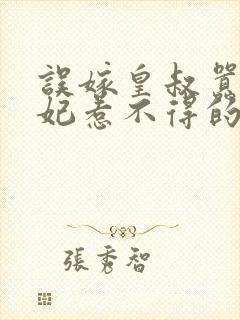 誤嫁皇叔囂
妃惹不得的
張秀智